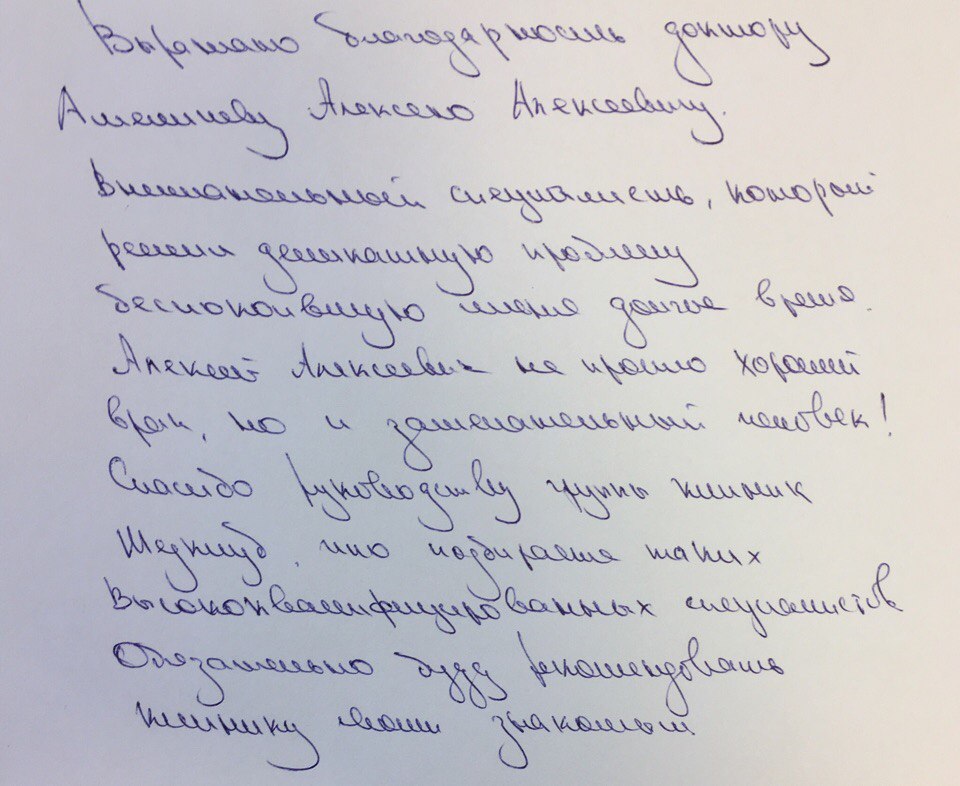 Выражаю благодарность доктору
Алексею Алексеевичу.
Внимательный специалисть, который
решил деликатную проблему
беспокоившую меня долгое время.
Алексей Алексеевич не просто хороший
врач, но и замечательный человек!
Спасибо руководству группы клиник
Медклуб, что подбираете таких
высококвалифицированных специалистов
Обязательно буду рекомендовать
клинику моим знакомым